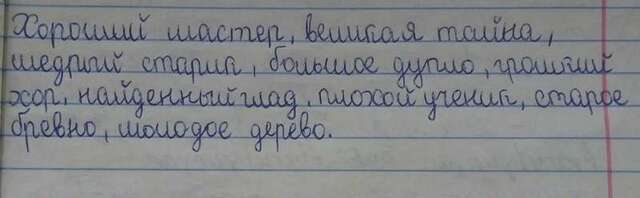 Хороший мастер, великая тайна,
щедрый старик, большое дупло, громкий
хор, найденный клад, плохой ученик, старое
бревно, молодое дерево.